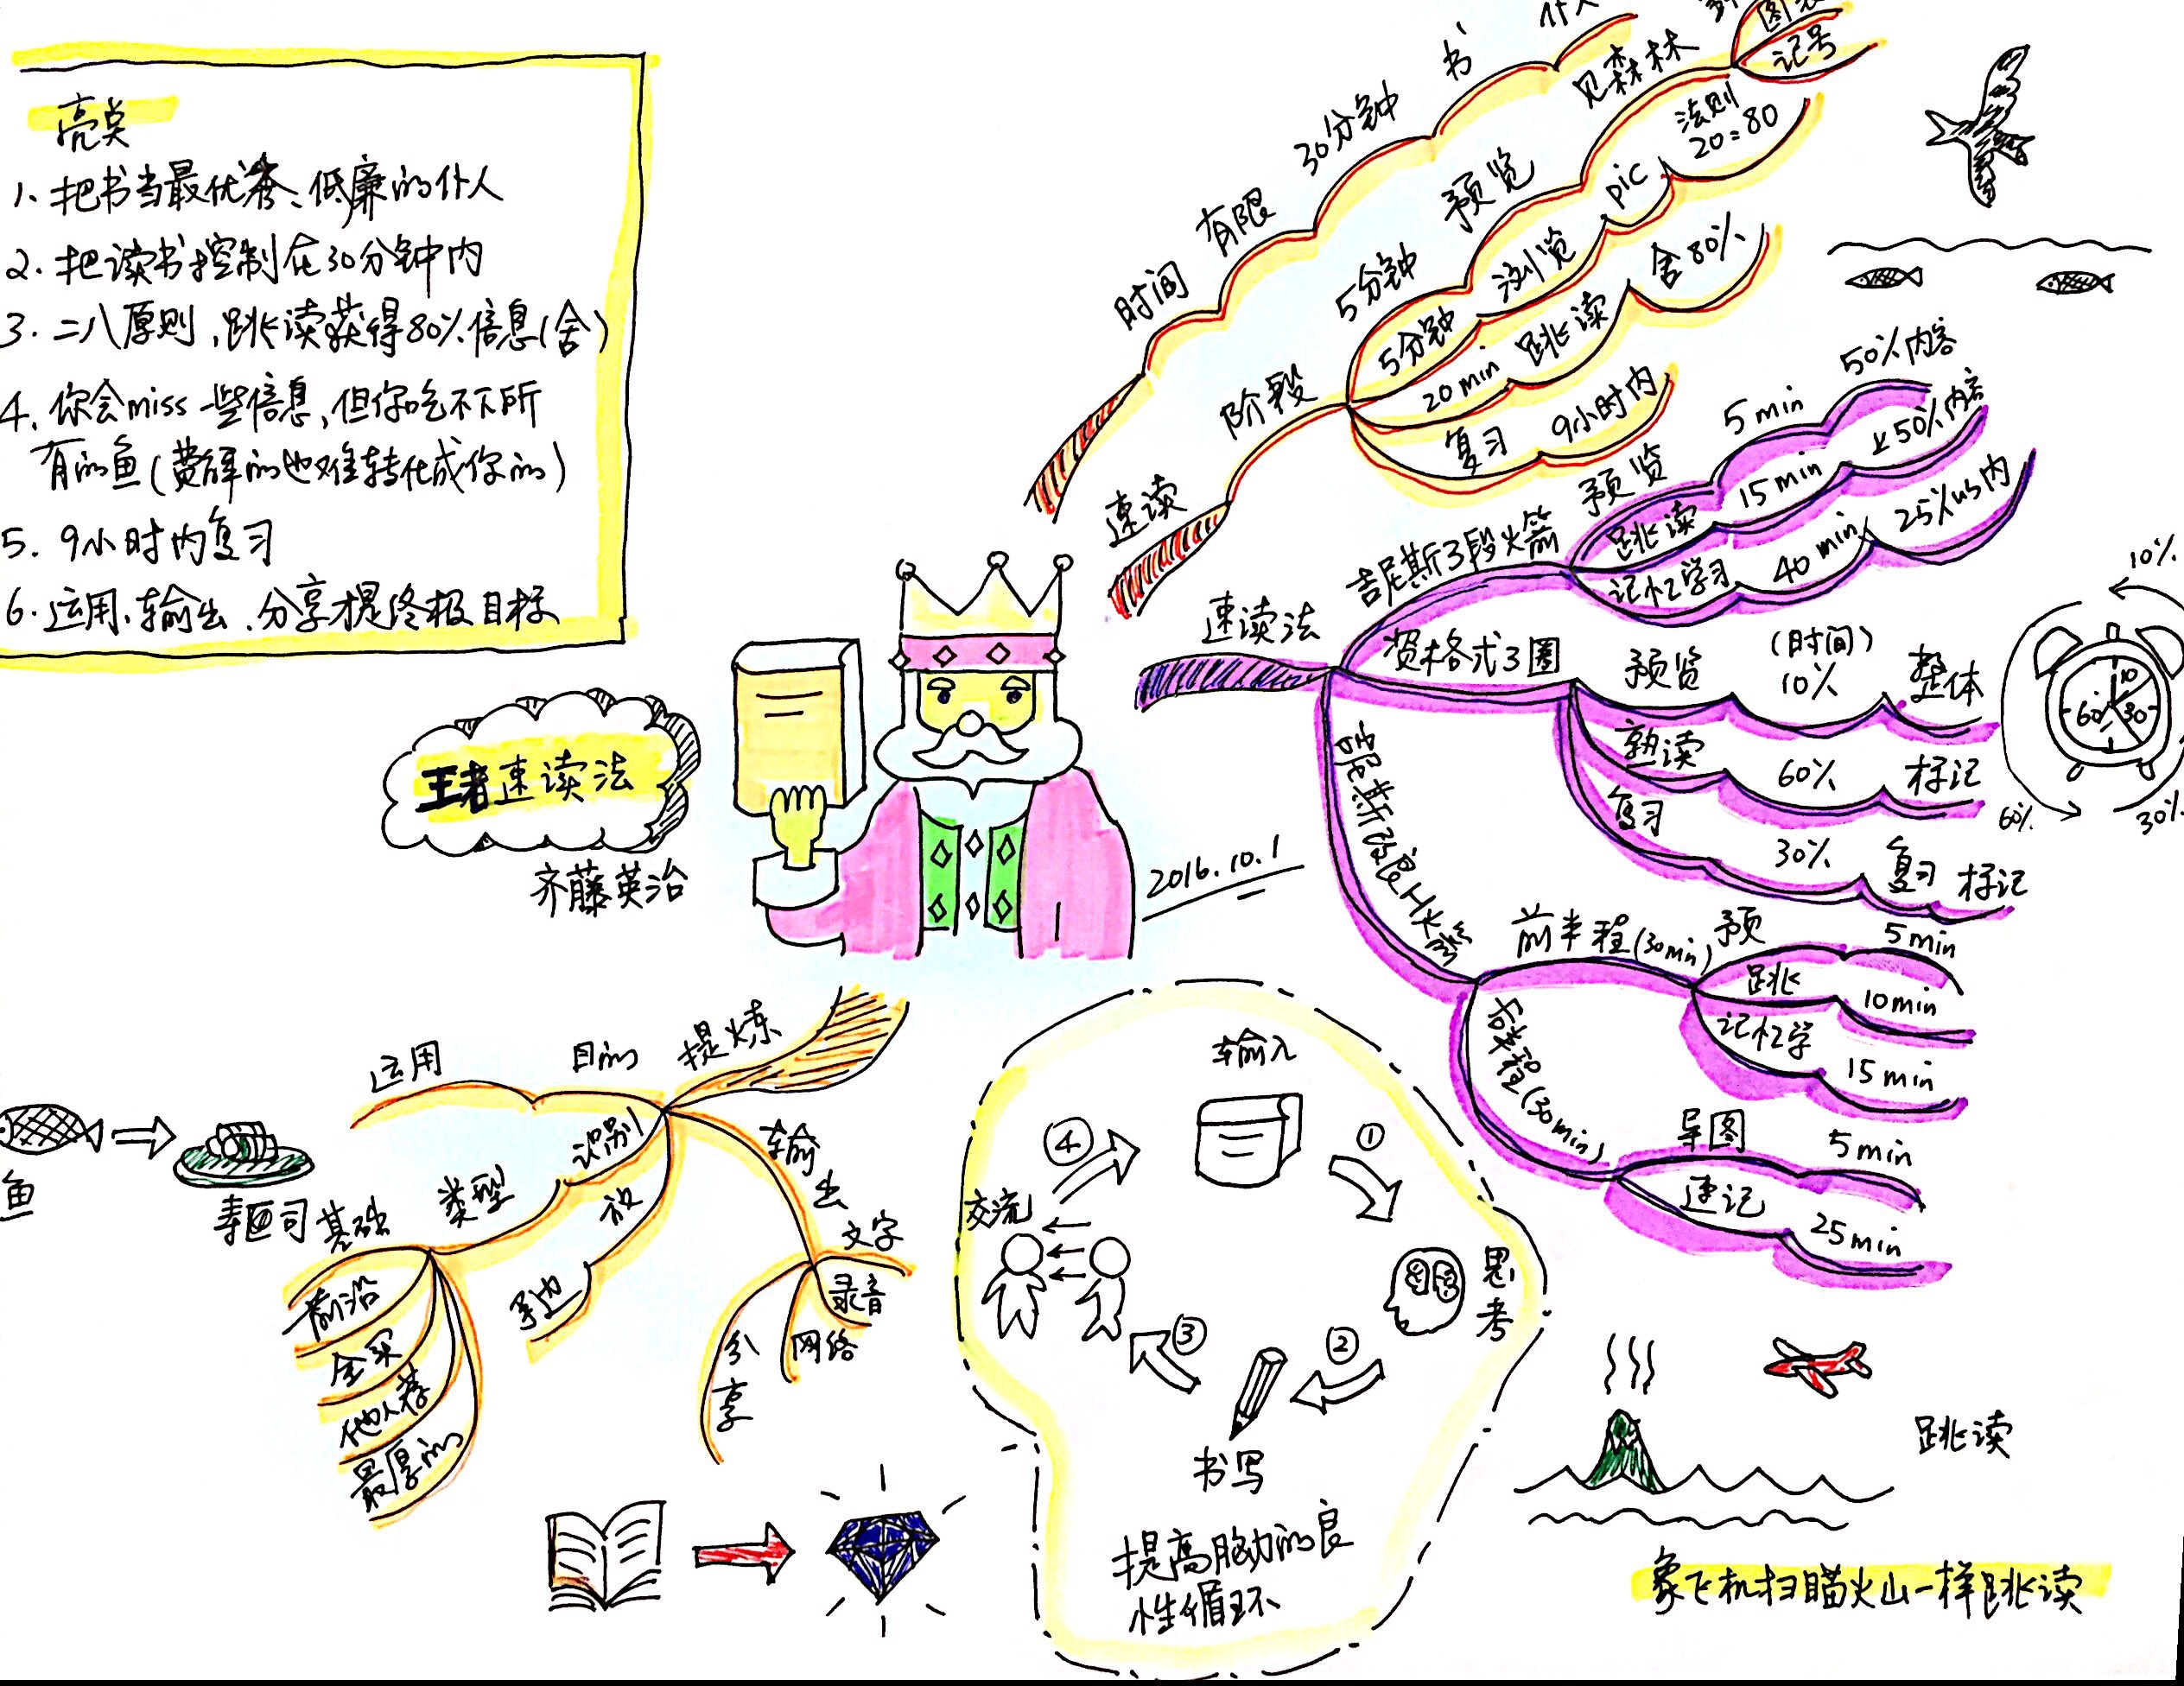 亮点
1、把书当最优秀、低廉的仆人
2、把读书控制在30分钟内
3、二八原则,跳读获得80%信息(舍)
4、你会miss一些信息,但你吃不下所
有的鱼(费解的也难转化成你的)
5、9小时内复习
6、运用、输出、分享才是终极目标
王者速读法
齐藤英治
2016.10.1
时间 有限 30分钟 书 仆人
速读 阶段
5分钟 预览 见森林
记号
5分钟 浏览 pic 法则
20=80
20min 跳读 舍80%
复习 9小时内
速读法
吉尼斯3段火箭 预览 5min 50%内容
跳读 15min 上50%内容
记忆学习 40min 25%us内
资格式3圈 预览 (时间)
10% 整体
熟读 60% 标记
复习 30% 复习标记
10%
10
60
30
60%
30%
前半程(30min) 预 5min
跳 10min
记忆学 15min
后半程(30min)
导图 5min
速记 25min
提炼
目的 运用
识别 类型
基础
前沿
全买
他人荐
最厚的
放 手边
输出
文字
录音
网络
分享
鱼
寿司
输入
①
思考
②
书写
③
交流
④
提高脑力的良
性循环
跳读
象飞机扫瞄火山一样跳读